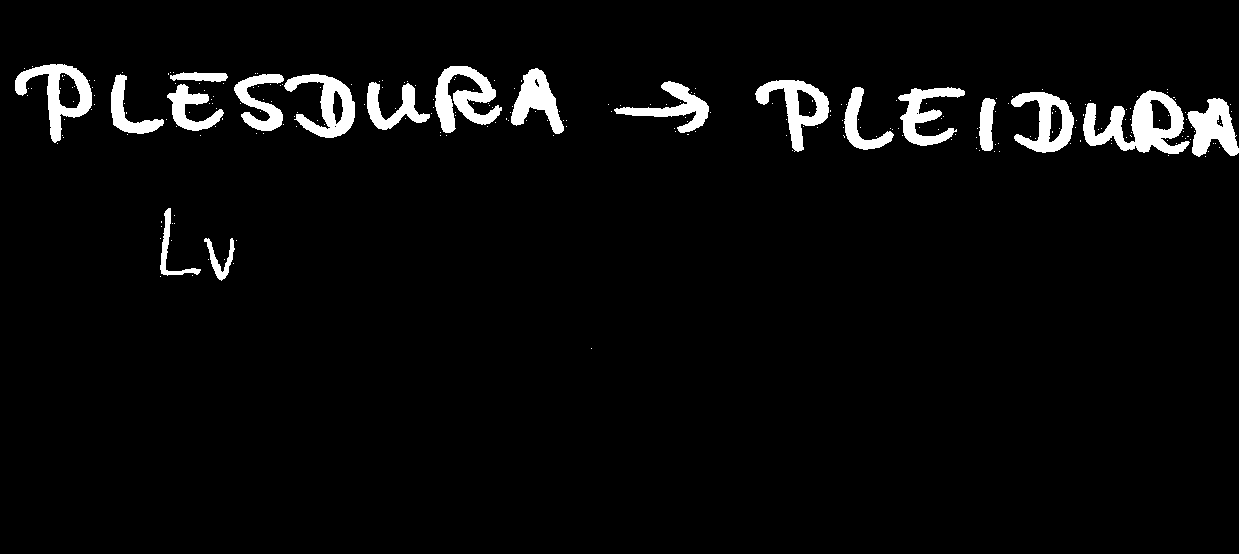 PLESDURA → PLEIDURA
Lv